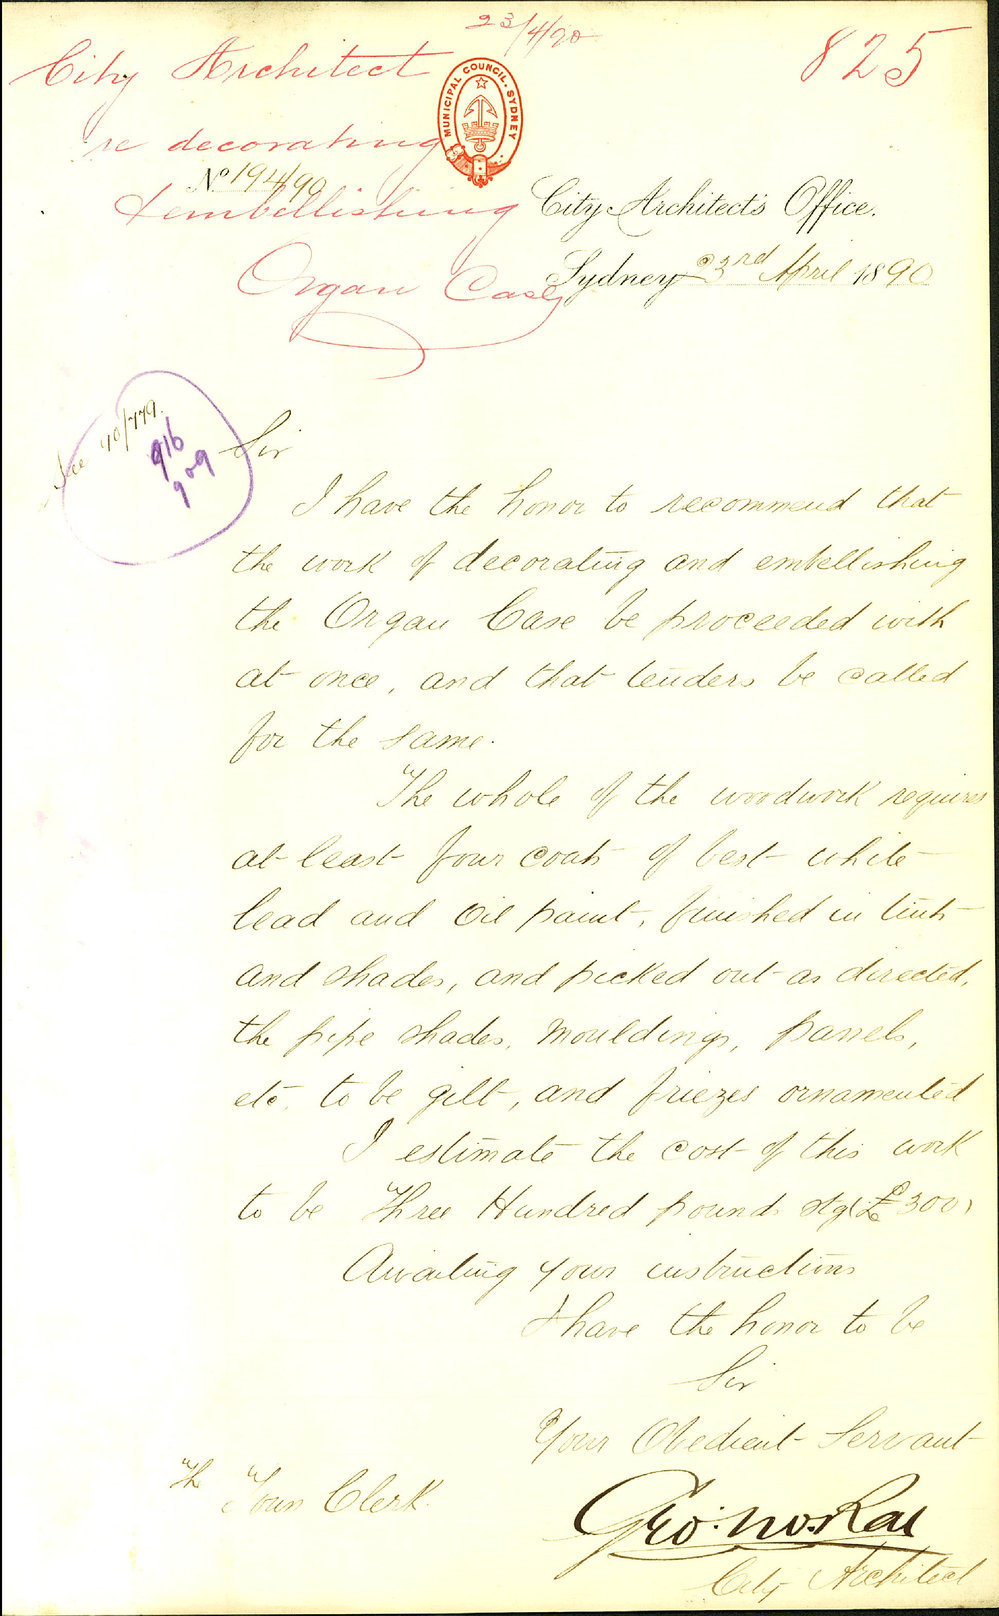 23/4/90
City Architect
825
MUNICIPAL COUNCIL. SYDNEY
re decorating
No 194/90
& embellishing
City Architect's Office.
Organ Case
Sydney 23rd April 1890
See 90/779.
916
909
Sir
I have the honor to recommend that
the work of decorating and embellishing
the Organ Case be proceeded with
at once, and that tenders be called
for the same.
The whole of the woodwork requires
at least four coats of best white
lead and oil paint, finished in tints
and shades, and picked out as directed,
the pipe shades, mouldings, pannels,
etc. to be gilt, and friezes ornamented
I estimate the cost of this work
to be Three Hundred pounds stg (£300)
Awaiting your instructions
I have the honor to be
Sir
Your Obedient Servant
The Town Clerk.
Geo: McRae
City Architect